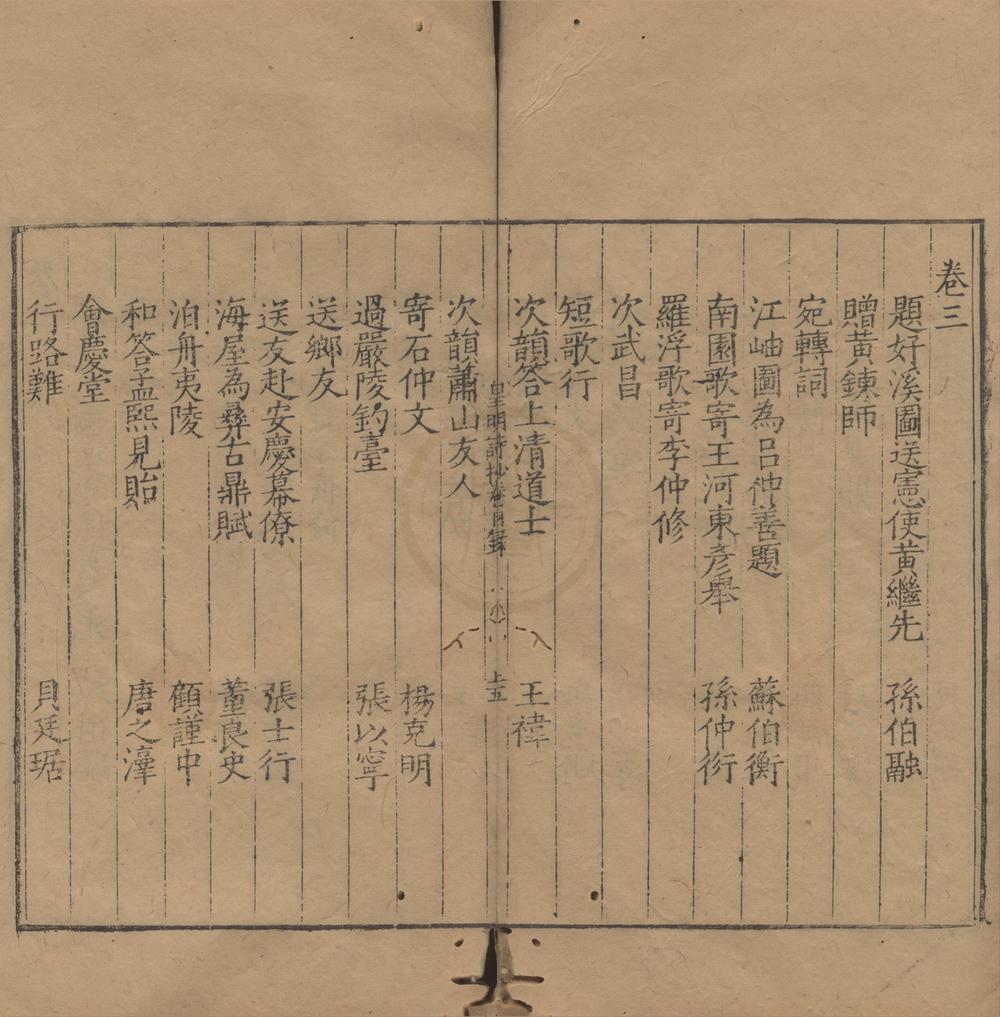 卷三
題好溪圖送憲使黃繼先　孫伯融
贈黃鍊師
宛轉詞
江岫圖為呂仲善題　蘇伯衡
南園歌寄王河東彥舉　孫仲衍
羅浮歌寄李仲修
次武昌
短歌行
次韻答上清道士　王禕
皇明詩抄卷目錄　上五
次韻蕭山友人
寄石仲文　楊克明
過嚴陵釣臺　張以寧
送鄉友
送友赴安慶幕僚　張士行
海屋為彝古鼎賦　董良史
泊舟夷陵　顧謹中
和答孟熙見貽　唐之淳
會慶堂
行路難　貝廷琚